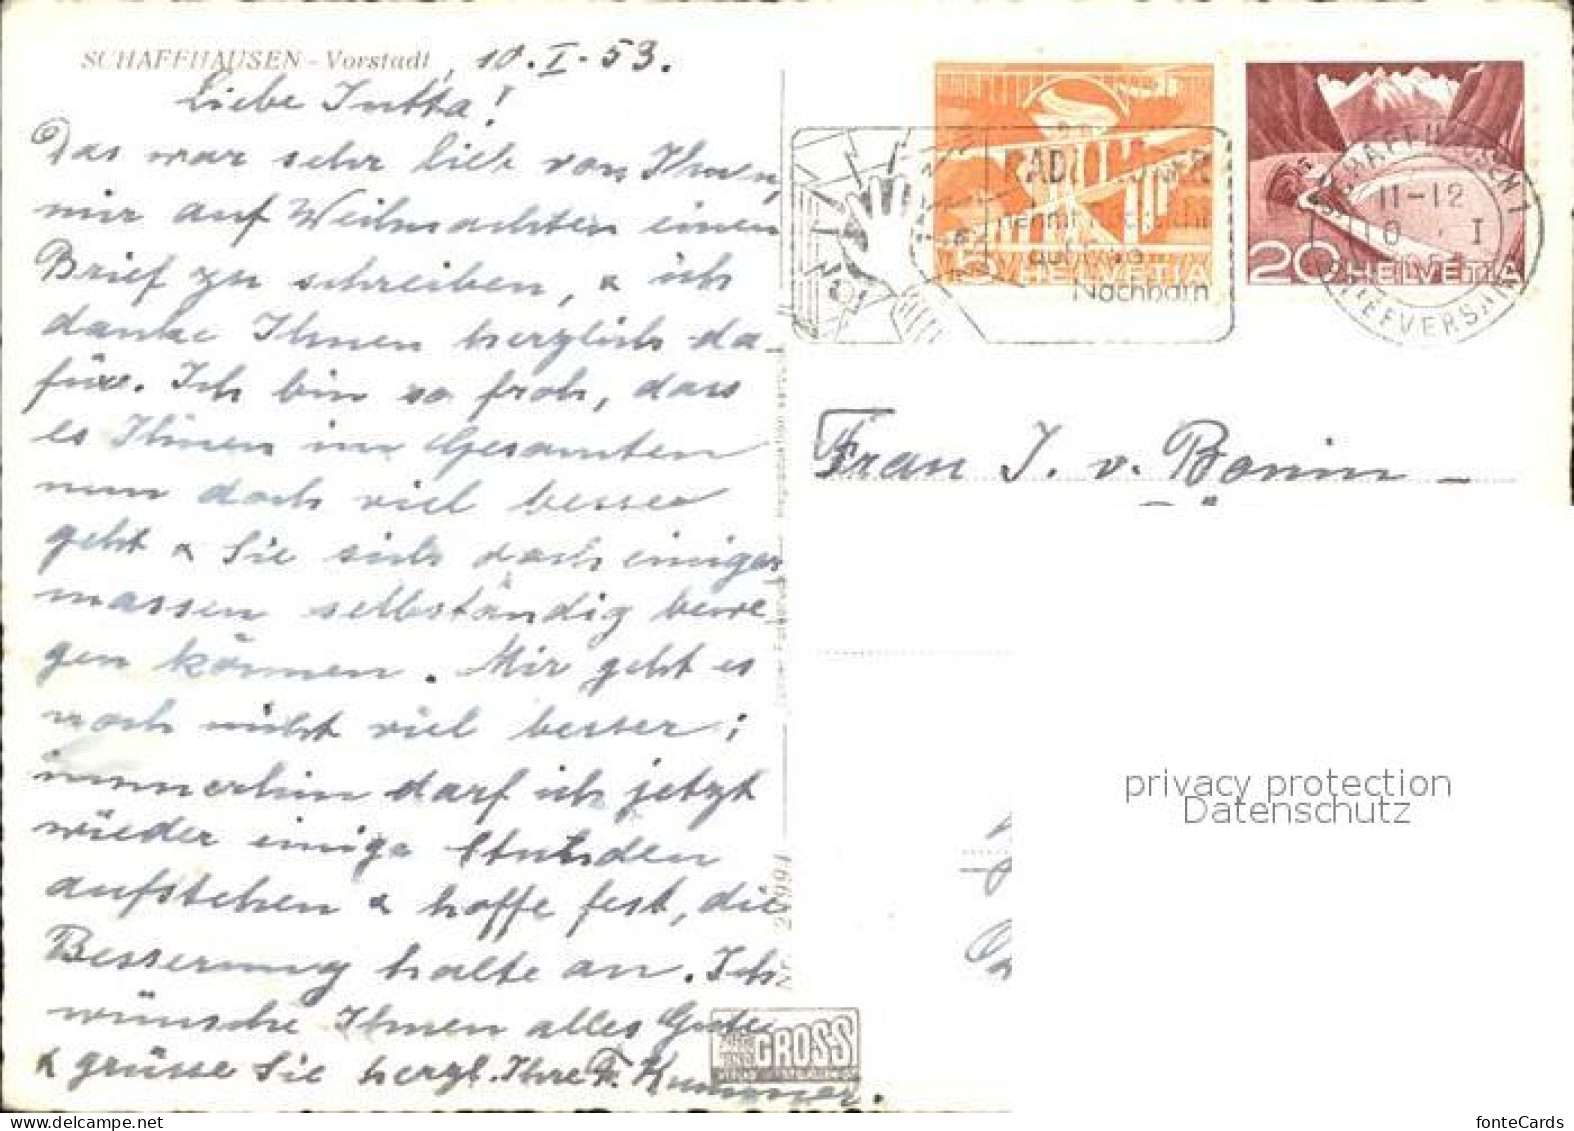 SCHAFFHAUSEN - Vorstadt, 10.I-53.
Liebe Jutta!
Das war sehr lieb von Ihnen,
mir auf Weihnachten einen
Brief zu schreiben, & ich
danke Ihnen herzlich da-
für. Ich bin so froh, dass
es Ihnen im Gesamten
nun doch viel besser
geht & Sie sich doch einiger
massen selbständig bewe
gen können. Mir geht es
noch nicht viel besser;
immerhin darf ich jetzt
wieder einige Stunden
aufstehen & hoffe fest, die
Besserung halte an. Ich
wünsche Ihnen alles Gute
& grüsse Sie herzl. Ihre F. Kummer.
GROSS
HELVETIA
20 HELVETIA
Nachbarn
SCHAFFHAUSEN 1
11-12
10 I
BRIEFVERSAND
Frau J. v. Bonin -
privacy protection
Datenschutz
fonteCards